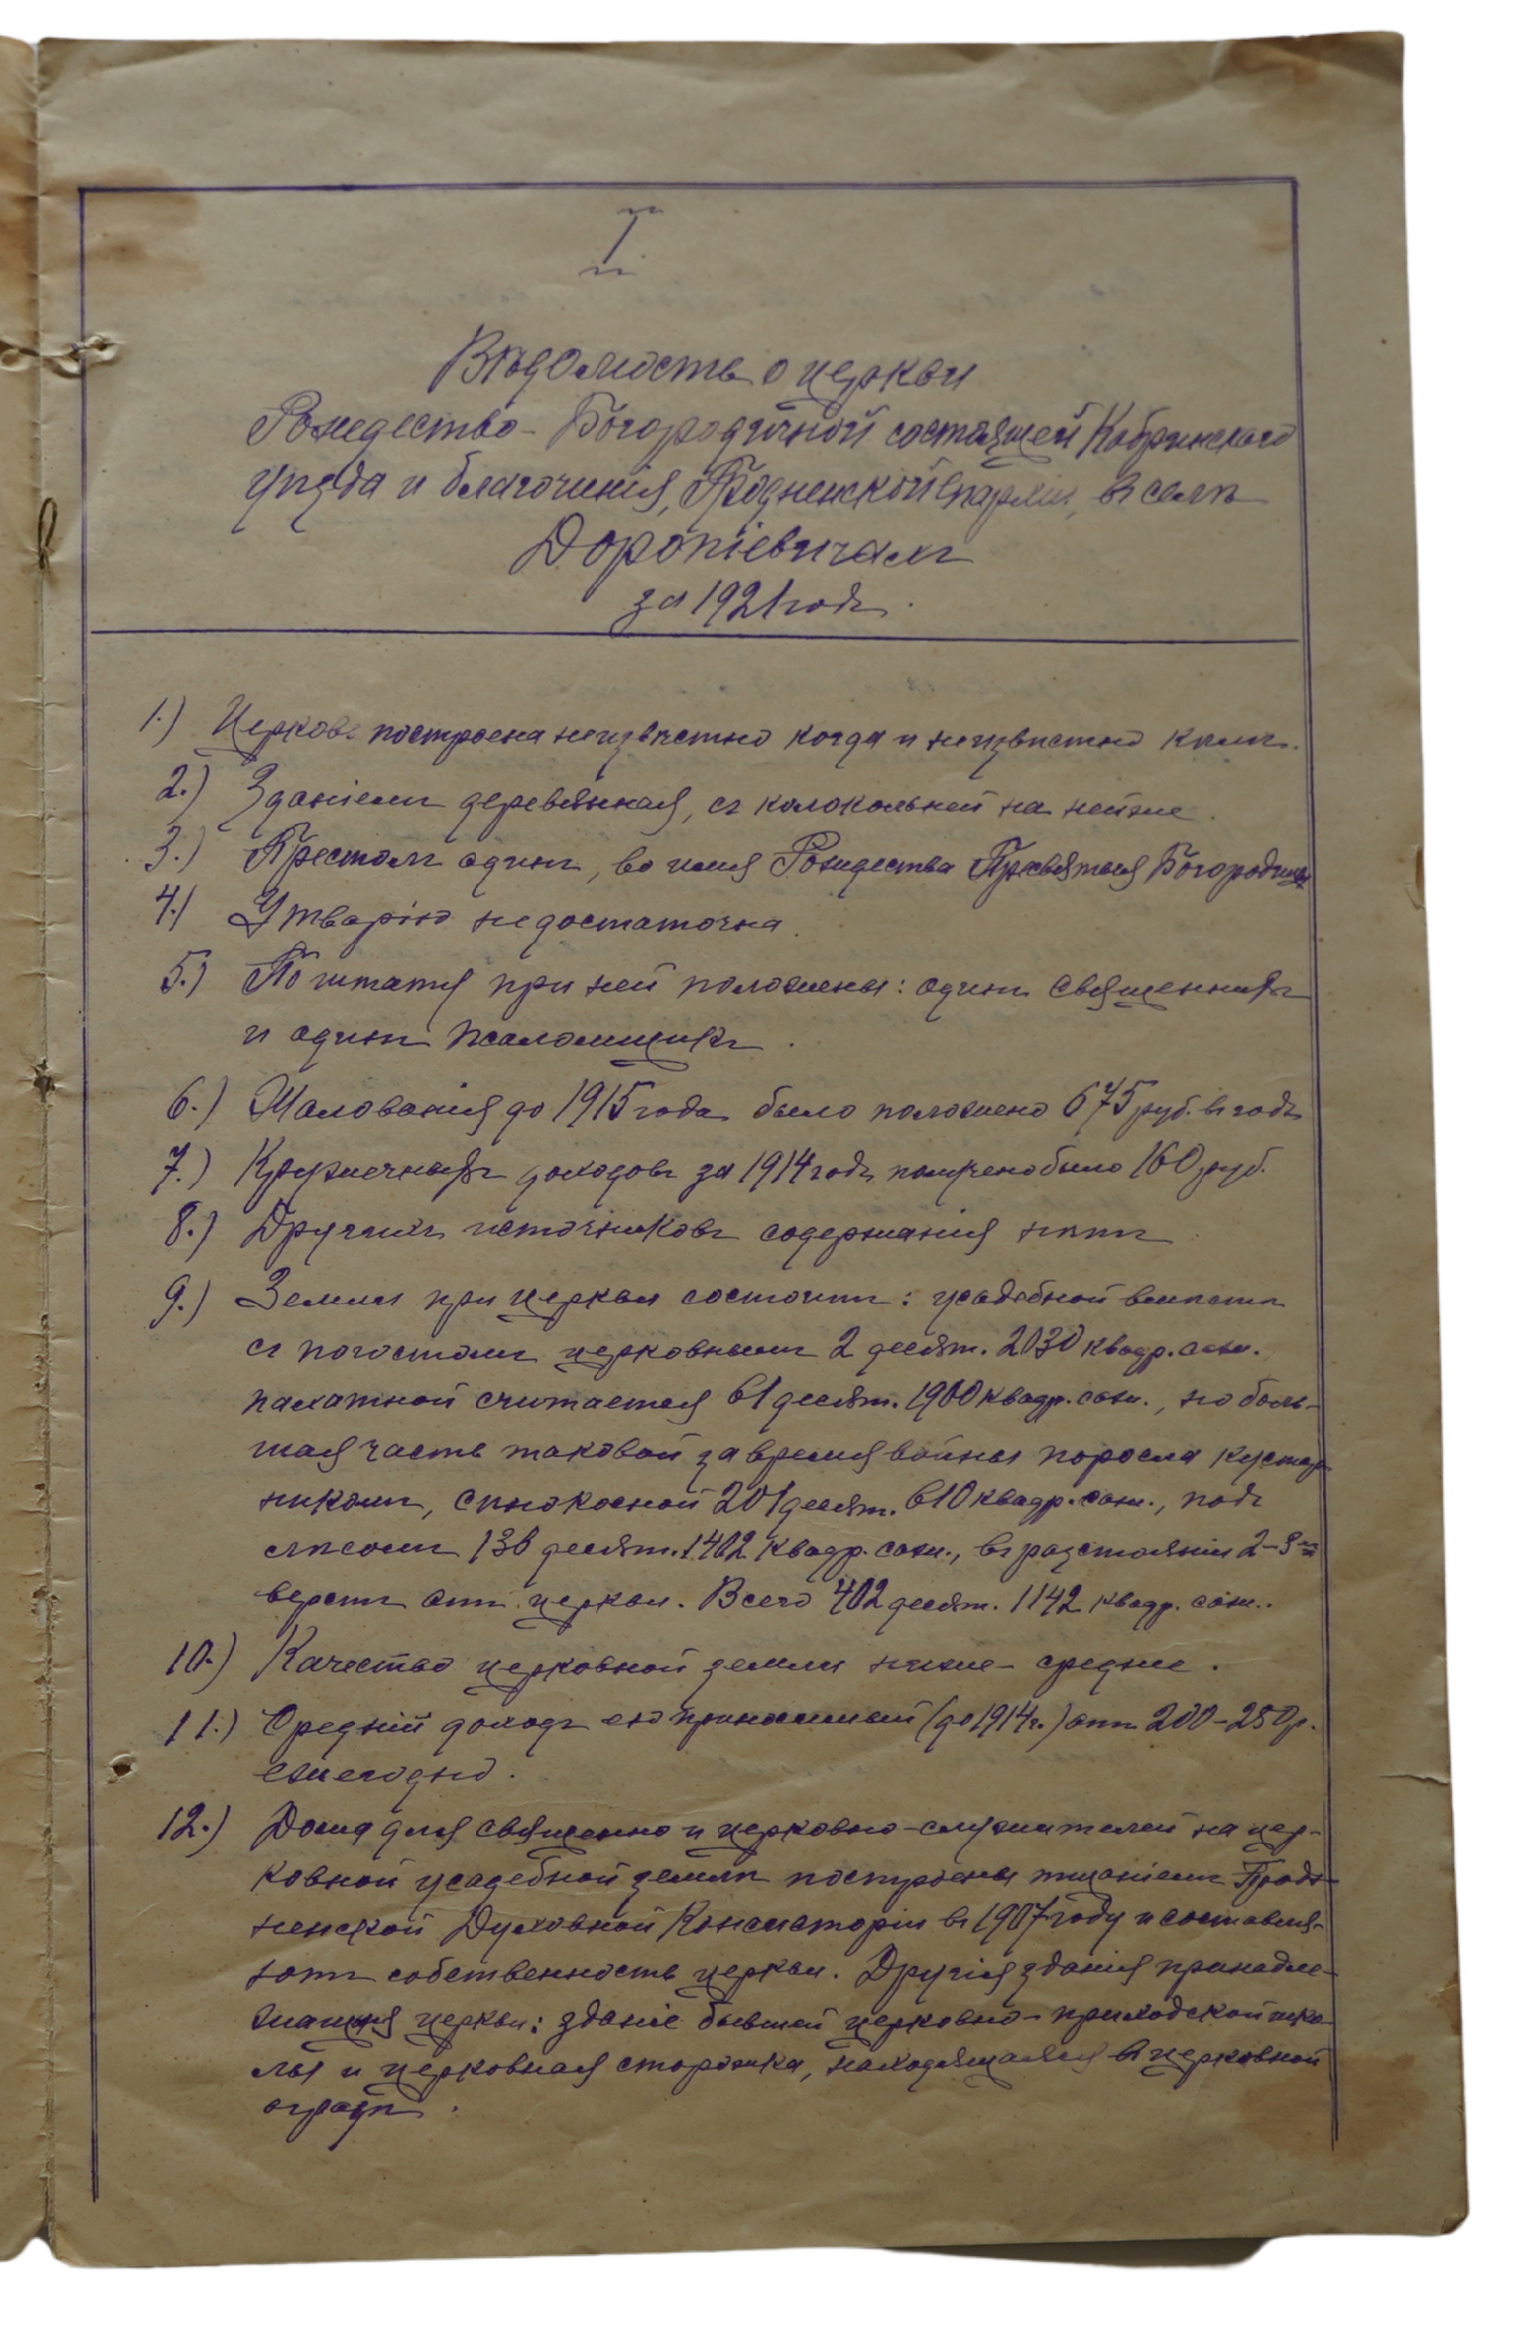 I
Вѣдомость о церкви
Рождество-Богородичной состоящей Кобринскаго
уѣзда и благочинія, Гродненской епархіи, въ селѣ
Доропіевичахъ
за 1921 годъ.
1.) Церковь построена неизвѣстно когда и неизвѣстно кѣмъ.
2.) Зданіемъ деревянная, съ колокольней на ней же.
3.) Престолъ одинъ, во имя Рождества Пресвятыя Богородицы
4.) Утварію недостаточна.
5.) По штату при ней положены: одинъ священникъ
и одинъ псаломщикъ.
6.) Жалованія до 1915 года было положено 675 руб. въ годъ
7.) Кружечныхъ доходовъ за 1914 годъ получено было 160 руб.
8.) Другихъ источниковъ содержанія нѣтъ
9.) Земли при церкви состоитъ: усадебной вмѣстѣ
съ погостомъ церковнымъ 2 десят. 2030 квадр. саж.
пахатной считается 61 десят. 1900 квадр. саж., но боль-
шая часть таковой за время войны поросла кустар
никомъ, сѣнокосной 201 десят. 610 квадр. саж., подъ
лѣсомъ 136 десят. 1402 квадр. саж., въ разстояніи 2-3-хъ
верстъ отъ церкви. Всего 402 десят. 1142 квадр. саж..
10.) Качество церковной земли ниже-средне.
11.) Средній доходъ ею приносимый (до 1914 г.) отъ 200-250 р.
ежегодно.
12.) Дома для священно и церковно-служителей на цер-
ковной усадебной землѣ построены тщаніемъ Грод-
ненской Духовной Консисторіи въ 1907 году и составля-
ютъ собственность церкви. Другія зданія принадле-
жащія церкви: зданіе бывшей церковно-приходской шко-
лы и церковная сторожка, находящаяся въ церковной
оградѣ.